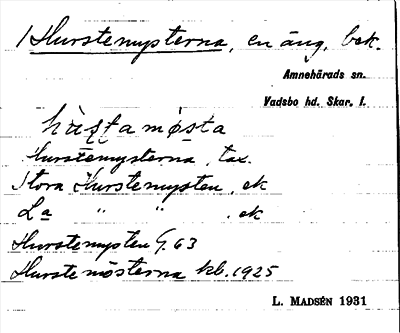 1 Hurstemysterna, en äng, bek.
Amnehärads sn.
Vadsbo hd. Skar. l.
hùs̱tamø̀sta
Hurstemysterna, tax.
Stora Hurstemysten, ek
La " " , ek
Hurstemysten G. 63
Hurstemösterna kb. 1925
L. MADSÉN 1931